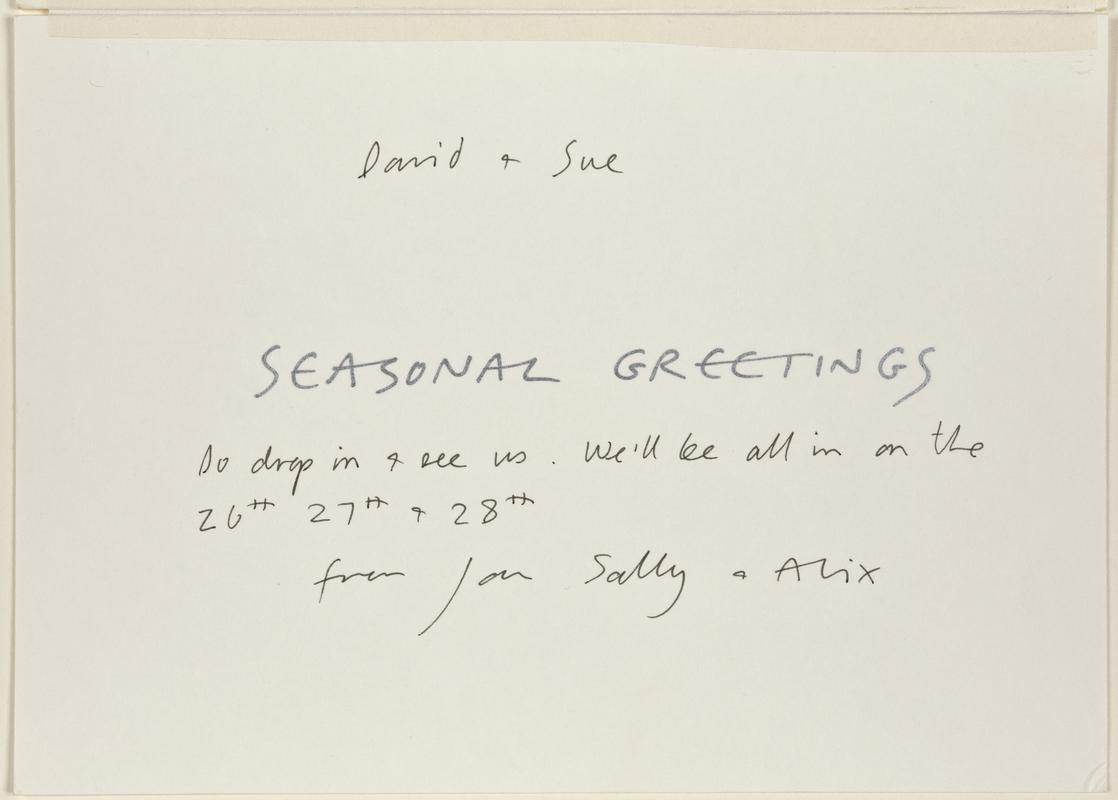 David + Sue
SEASONAL GREETINGS
Do drop in + see us. We'll be all in on the
26th 27th + 28th
from Jon Sally + Alix